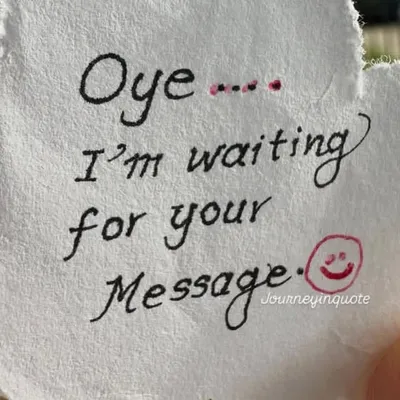 Oye ....
I'm waiting
for your
Message.
Journeyinquote